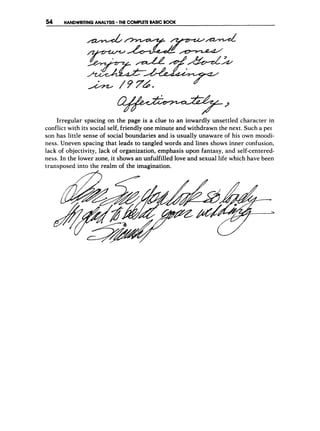 54 HANDWRITING ANALYSIS - THE COMPLETE BASIC BOOK
and may you and
your loved ones
enjoy all of God's
richest blessings
in 1976.
Affectionately,
Irregular spacing on the page is a clue to an inwardly unsettled character in
conflict with its social self, friendly one minute and withdrawn the next. Such a per
son has little sense of social boundaries and is usually unaware of his own moodi-
ness. Uneven spacing that leads to tangled words and lines shows inner confusion,
lack of objectivity, lack of organization, emphasis upon fantasy, and self-centered-
ness. In the lower zone, it shows an unfulfilled love and sexual life which have been
transposed into the realm of the imagination.
you look so
glad to your